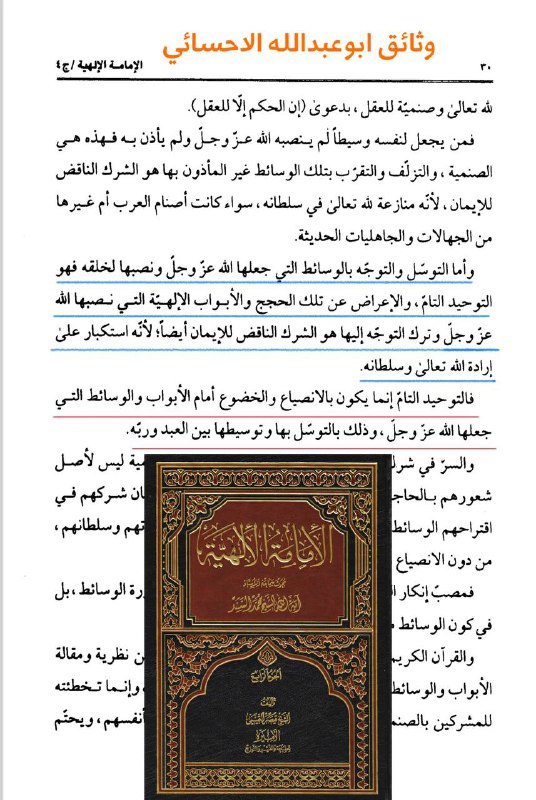 وثائق ابوعبدالله الاحسائي
٣٠
الإمامة الإلهية /ج٤
لله تعالىٰ وصنميّة للعقل، بدعوىٰ (إن الحكم إلّا للعقل).
فمن يجعل لنفسه وسيطاً لم ينصبه الله عزّ وجلّ ولم يأذن به فهذه هي
الصنمية، والتزلّف والتقرّب بتلك الوسائط غير المأذون بها هو الشرك الناقض
للإيمان، لأنّه منازعة لله تعالىٰ في سلطانه، سواء كانت أصنام العرب أم غيرها
من الجهالات والجاهليات الحديثة.
وأما التوسّل والتوجّه بالوسائط التي جعلها الله عزّ وجلّ ونصبها لخلقه فهو
التوحيد التامّ، والإعراض عن تلك الحجج والأبواب الإلهيّة التي نصبها الله
عزّ وجلّ وترك التوجّه إليها هو الشرك الناقض للإيمان أيضاً؛ لأنّه استكبار علىٰ
إرادة الله تعالىٰ وسلطانه.
فالتوحيد التامّ إنما يكون بالانصياع والخضوع أمام الأبواب والوسائط التي
جعلها الله عزّ وجلّ، وذلك بالتوسّل بها وتوسيطها بين العبد وربّه.
والسرّ في شرك
مية ليس لأصل
شعورهم بالحاج
ان شركهم في
اقتراحهم الوسائط
تهم وسلطانهم،
من دون الانصياع
فمصبّ إنكار ال
ورة الوسائط، بل
في كون الوسائط م
والقرآن الكريم
ن نظرية ومقالة
الأبواب والوسائط
وإنما تخطئته
للمشركين بالصنم
أنفسهم، ويحتّم
الإمامة الإلهية
الجزء الرابع
تأليف
الأميرة